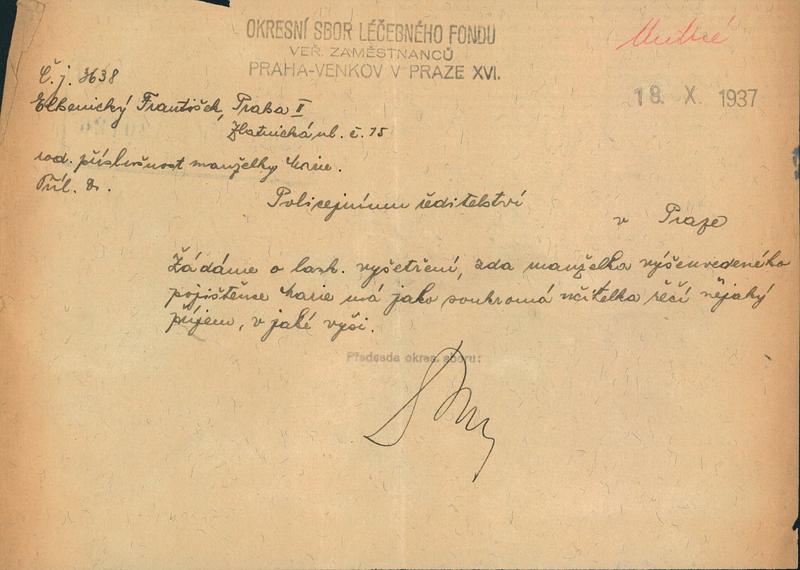 OKRESNÍ SBOR LÉČEBNÉHO FONDU
VEŘ. ZAMĚSTNANCŮ
PRAHA-VENKOV V PRAZE XVI.
18. X. 1937
Č. j. 3638
Elbenický František, Praha II
Zlatnická ul. č. 15
rod. příslušnost manželky Marie.
Příl.
Policejnímu ředitelství
v Praze
Žádáme o lask. vyšetření, zda manželka výšeuvedeného
pojištěnce Marie má jako soukromá učitelka řečí nějaký
příjem, v jaké výši.
Předseda okres. sboru: